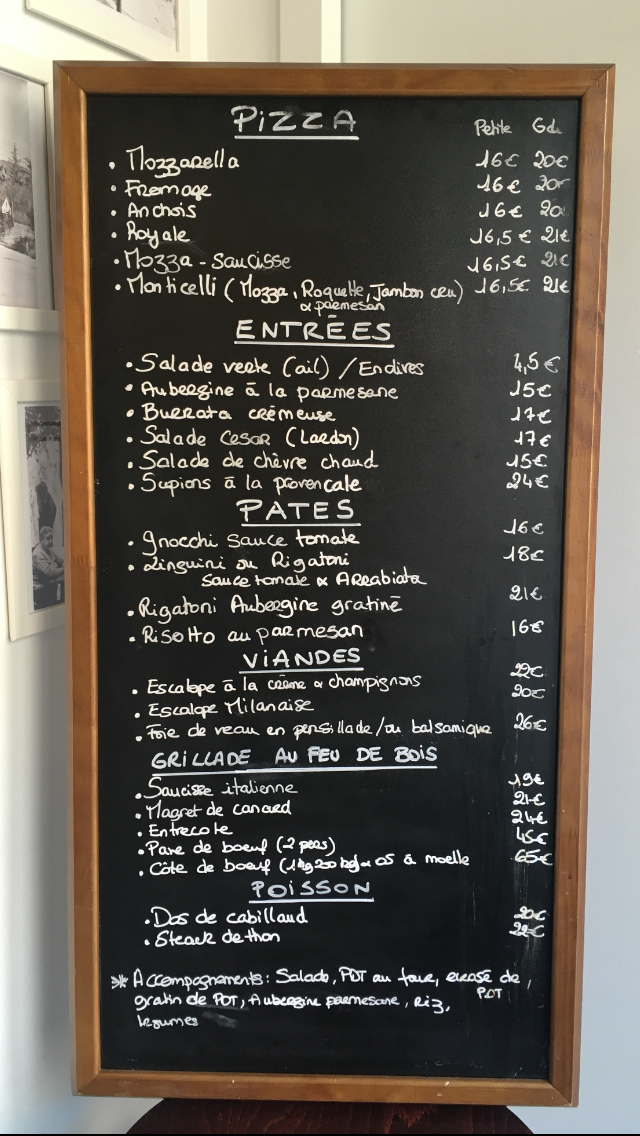 PIZZA Petite Gde
• Mozzarella 16€ 20€
• Fromage 16€ 20€
• Anchois 16€ 20
• Royale 16,5€ 21€
• Mozza - Saucisse 16,5€ 21€
• Monticelli (Mozza, Roquette, Jambon cru) 16,5€ 21€
& parmesan
ENTRÉES
• Salade verte (ail) / Endives 4,5€
• Aubergine à la parmesane 15€
• Burrata crémeuse 17€
• Salade Cesar (Lardon) 17€
• Salade de chèvre chaud 15€
• Supions à la provencale 24€
PATES
• Gnocchi sauce tomate 16€
• Linguini ou Rigatoni 18€
sauce tomate & Arrabiata
• Rigatoni Aubergine gratiné 21€
• Risotto au parmesan 16€
VIANDES
• Escalope à la crème & champignons 22€
• Escalope Milanaise 20€
• Foie de veau en persillade/ou balsamique 26€
GRILLADE AU FEU DE BOIS
• Saucisse italienne 19€
• Magret de canard 21€
• Entrecote 24€
• Pave de boeuf (2 pers) 45€
• Côte de boeuf (1kg200 os à moelle 65€
POISSON
• Dos de cabillaud 20€
• Steack de thon 22€
* Accompagnements: Salade, PDT au four, ecrasé de,
PDT
gratin de PDT, Aubergine parmesane, Riz,
legumes